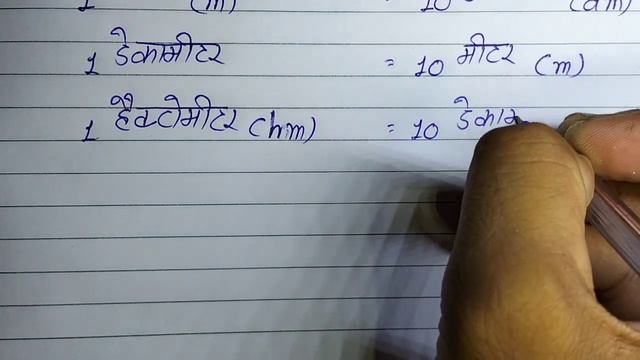 1 (m) 10 (dm)
1 डेकामीटर = 10 मीटर (m)
1 हैक्टोमीटर (hm) = 10 डेकाम